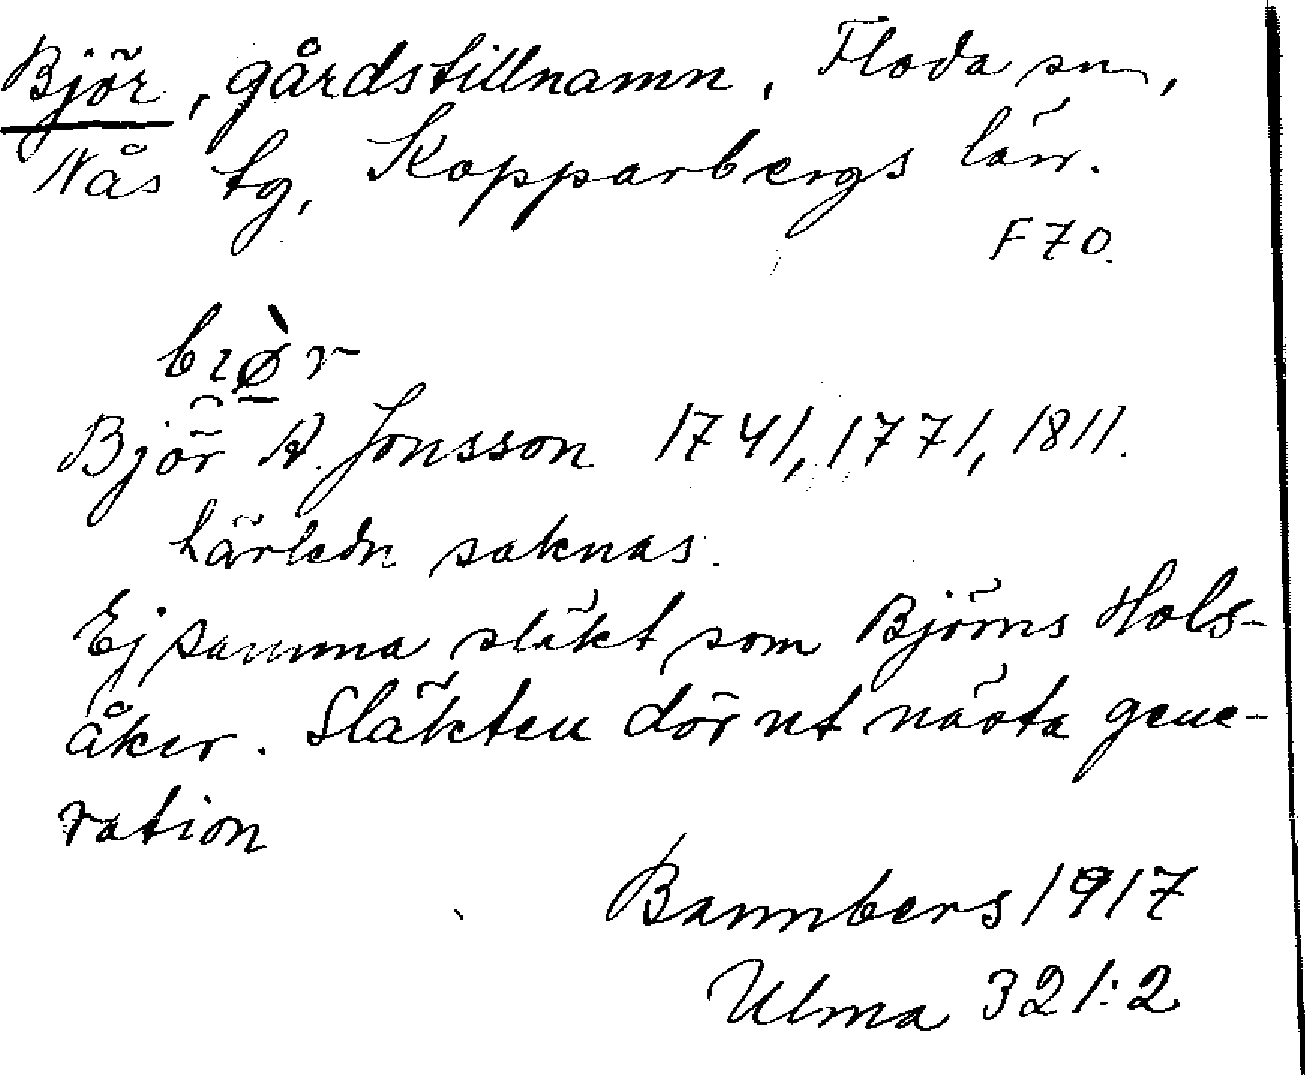 Björ, gårdstillnamn, Floda sn,
Nås tg, Kopparbergs län.
F 70.
Björ A. Jonsson 1741, 1771, 1811.
härledn saknas.
Ej samma släkt som Björns Hols-
åker. Släkten dör ut nästa gene-
ration
Bannbers 1917
Ulma 321:2